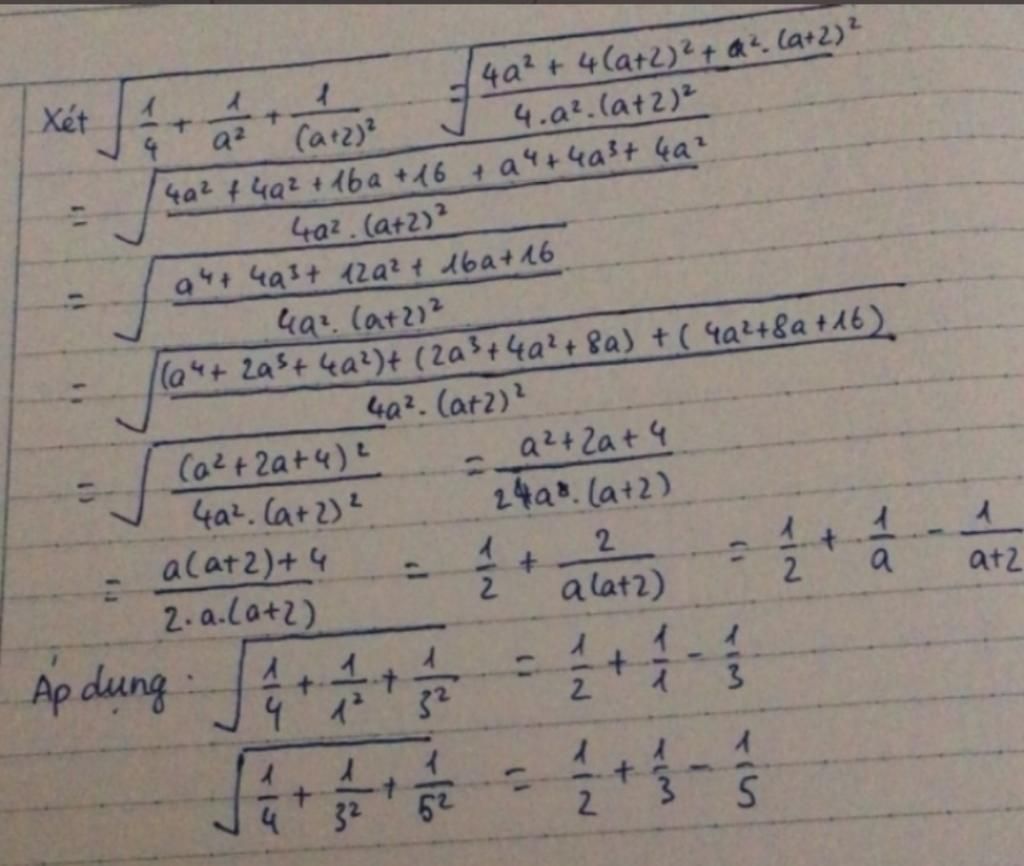 Xét √(1/4 + 1/a² + 1/(a+2)²) = √((4a² + 4(a+2)² + a².(a+2)²)/(4.a².(a+2)²))
= √((4a² + 4a² + 16a + 16 + a⁴ + 4a³ + 4a²)/(4a².(a+2)²))
= √((a⁴ + 4a³ + 12a² + 16a + 16)/(4a².(a+2)²))
= √(((a⁴ + 2a³ + 4a²) + (2a³ + 4a² + 8a) + (4a² + 8a + 16))/(4a².(a+2)²))
= √((a² + 2a + 4)²/(4a².(a+2)²)) = (a² + 2a + 4)/(2a.(a+2))
= (a(a+2) + 4)/(2.a.(a+2)) = 1/2 + 2/(a(a+2)) = 1/2 + 1/a - 1/(a+2
Áp dụng: √(1/4 + 1/1² + 1/3²) = 1/2 + 1/1 - 1/3
√(1/4 + 1/3² + 1/5²) = 1/2 + 1/3 - 1/5